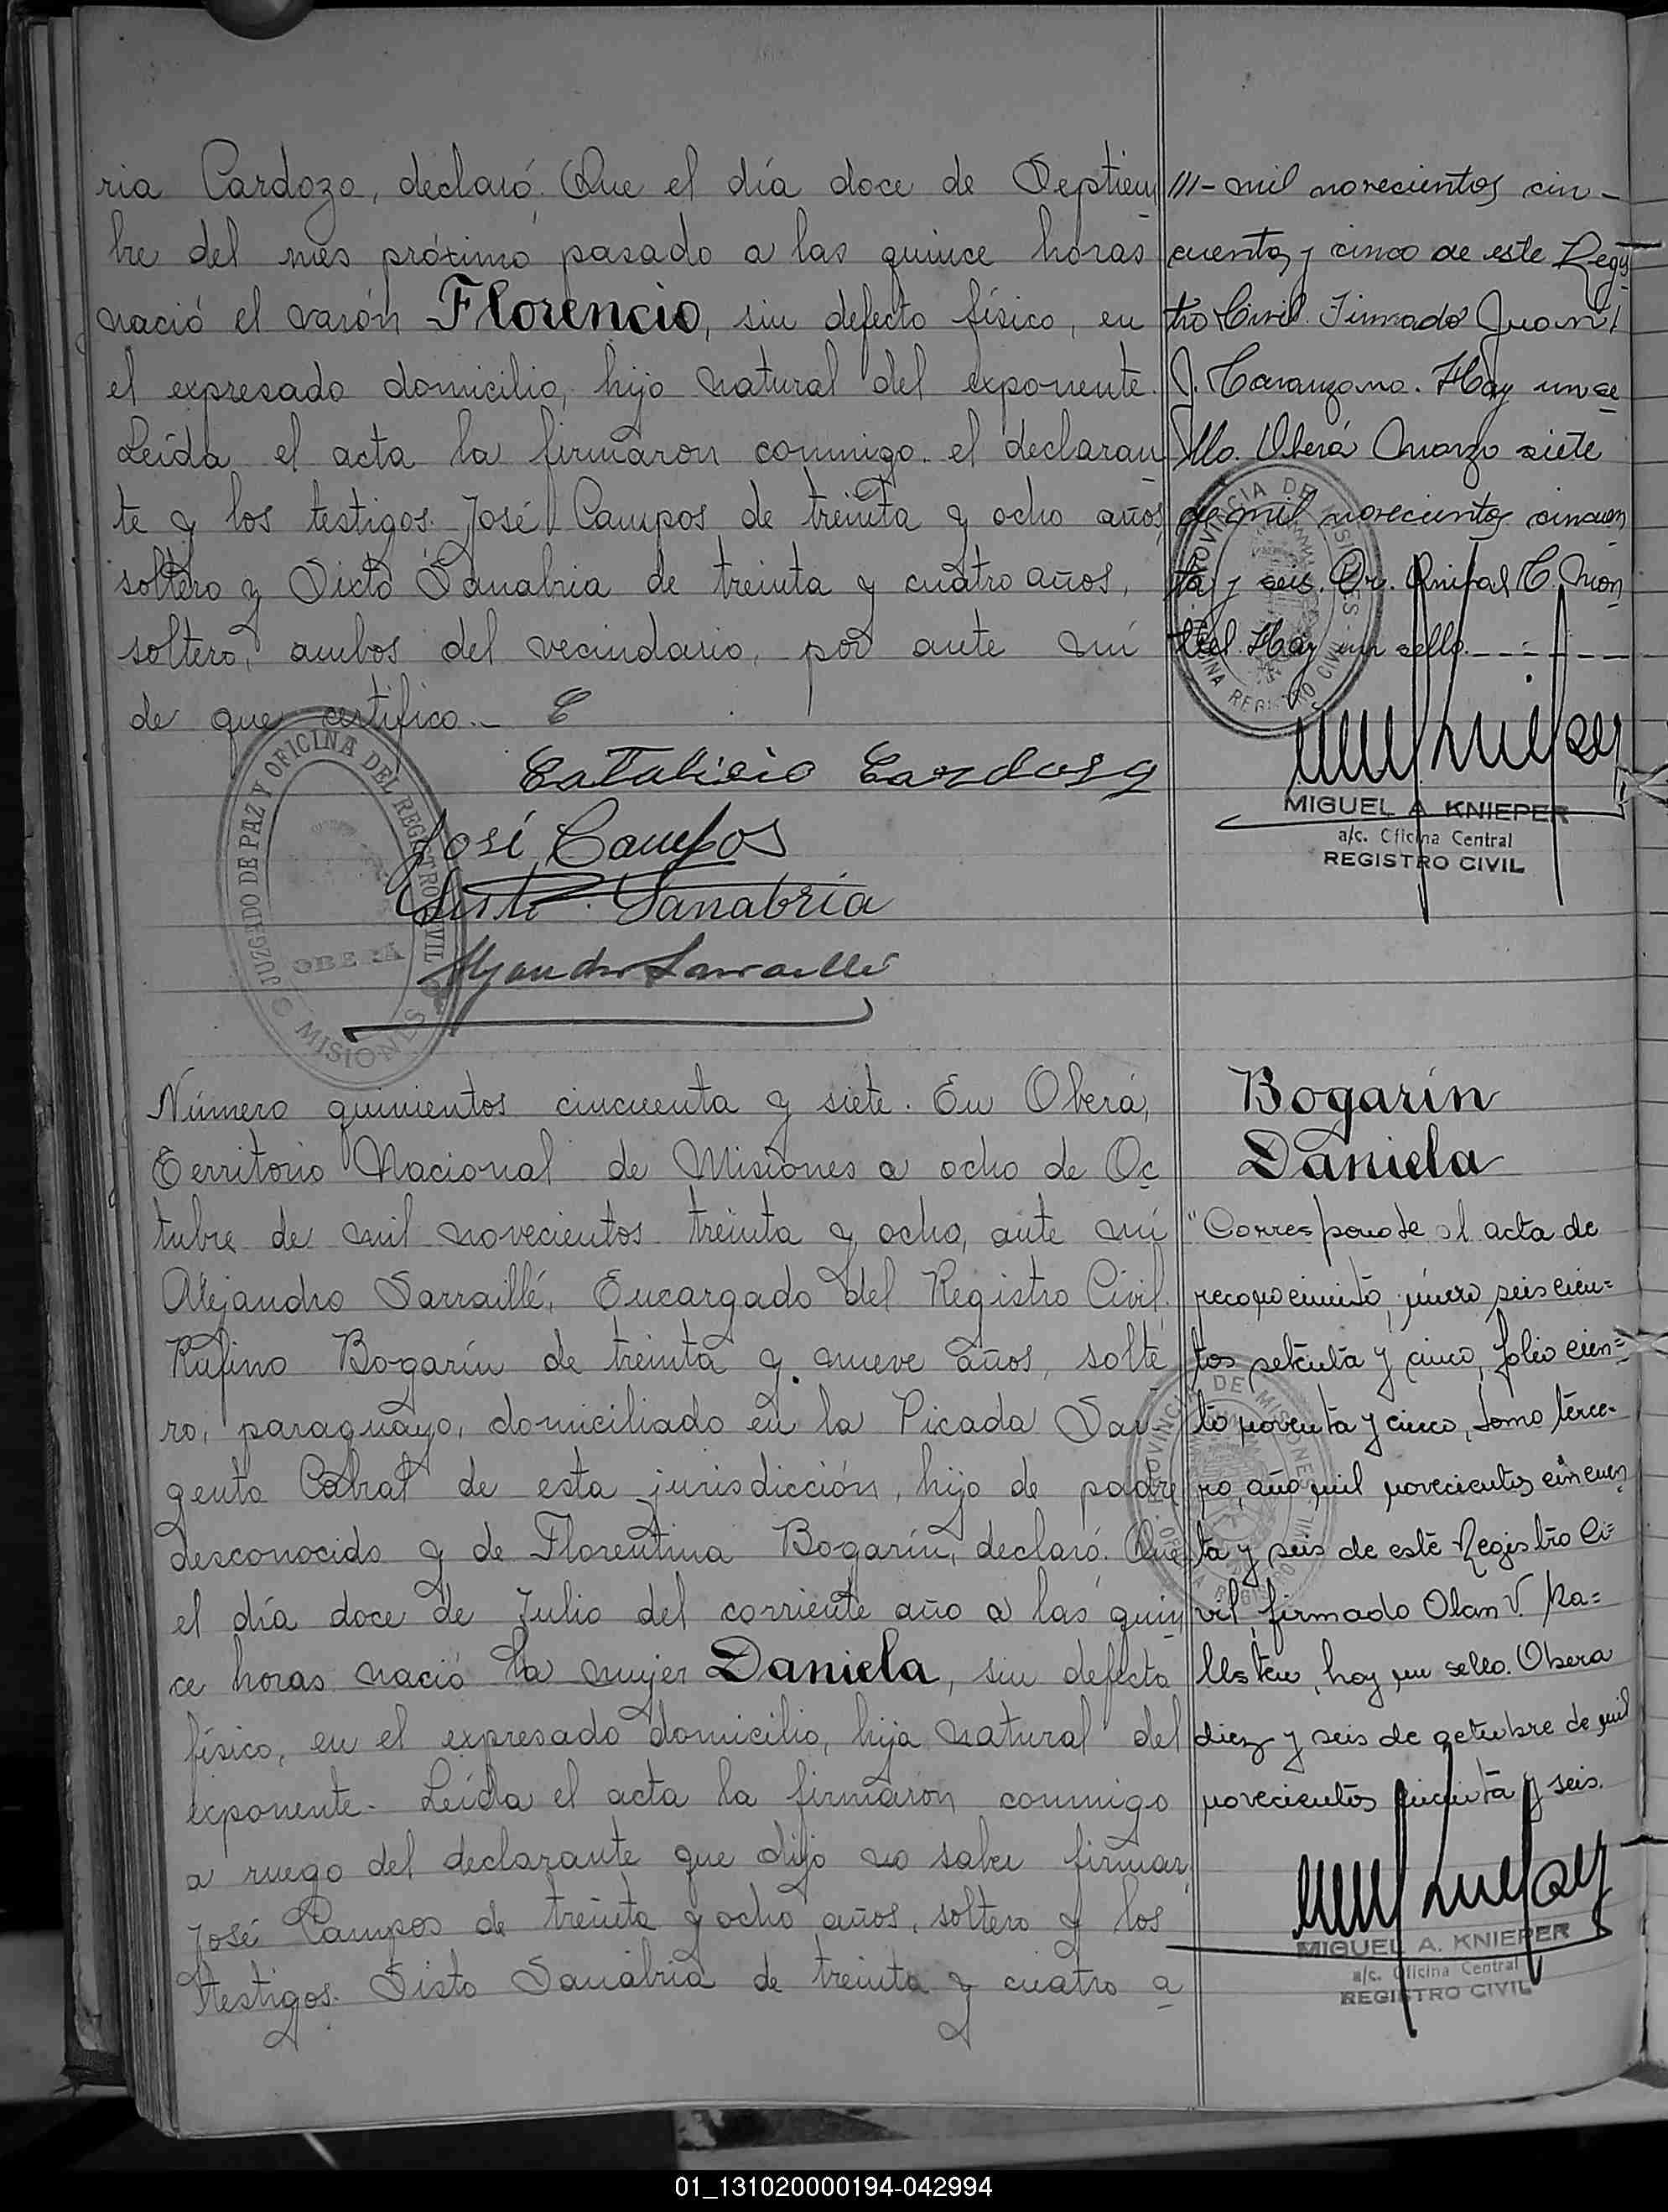 ria Cardozo, declaró: Que el día doce de Septiem
bre del mes próximo pasado a las quince horas
nació el varón Florencio, sin defecto físico, en
el expresado domicilio, hijo natural del exponente.
Leída el acta la firmaron conmigo el declaran
te y los testigos José Campos de treinta y ocho años,
soltero y Sixto Sanabria de treinta y cuatro años,
soltero, ambos del vecindario, por ante mí
de que certifico.-
José Campos
Sixto Sanabria
JUZGADO DE PAZ Y OFICINA DEL REGISTRO CIVIL
OBERA
MISIONES
///- mil novecientos cin-
cuenta y cinco de este Regis
tro Civil. Firmado Juan
J. Hay un se
llo. Oberá Marzo siete
de mil novecientos cincuen
ta y seis. Dr. Anibal C. Mon
tiel. Hay un sello.
PROVINCIA DE MISIONES
OFICINA REGISTRO CIVIL
MIGUEL A. KNIEPER
a/c. Oficina Central
REGISTRO CIVIL
Número quinientos cincuenta y siete. En Oberá,
Territorio Nacional de Misiones a ocho de Oc
tubre de mil novecientos treinta y ocho, ante mí
Alejandro Sarraillé, Encargado del Registro Civil.
Rufino Bogarín de treinta y nueve años, solte
ro, paraguayo, domiciliado en la Picada Sar
gento Cabral de esta jurisdicción, hijo de padre
desconocido y de Florentina Bogarín, declaró: Que
el día doce de Julio del corriente año a las quin
ce horas nació la mujer Daniela, sin defecto
físico, en el expresado domicilio, hija natural del
exponente. Leída el acta la firmaron conmigo
a ruego del declarante que dijo no saber firmar,
José Campos de treinta y ocho años, soltero y los
testigos. Sisto Sanabria de treinta y cuatro a
Bogarín
Daniela
"Corresponde al acta de
reconocimiento, número seiscien=
tos setenta y cinco, folio cien=
to noventa y cinco, tomo terce-
ro, año mil novecientos cincuen
ta y seis de este Registro Ci=
vil, firmado Olan V. Ka=
llsten, hay un sello. Obera
diez y seis de octubre de mil
novecientos cincuenta y seis.
MIGUEL A. KNIEPER
a/c. Oficina Central
REGISTRO CIVIL
01_131020000194-042994